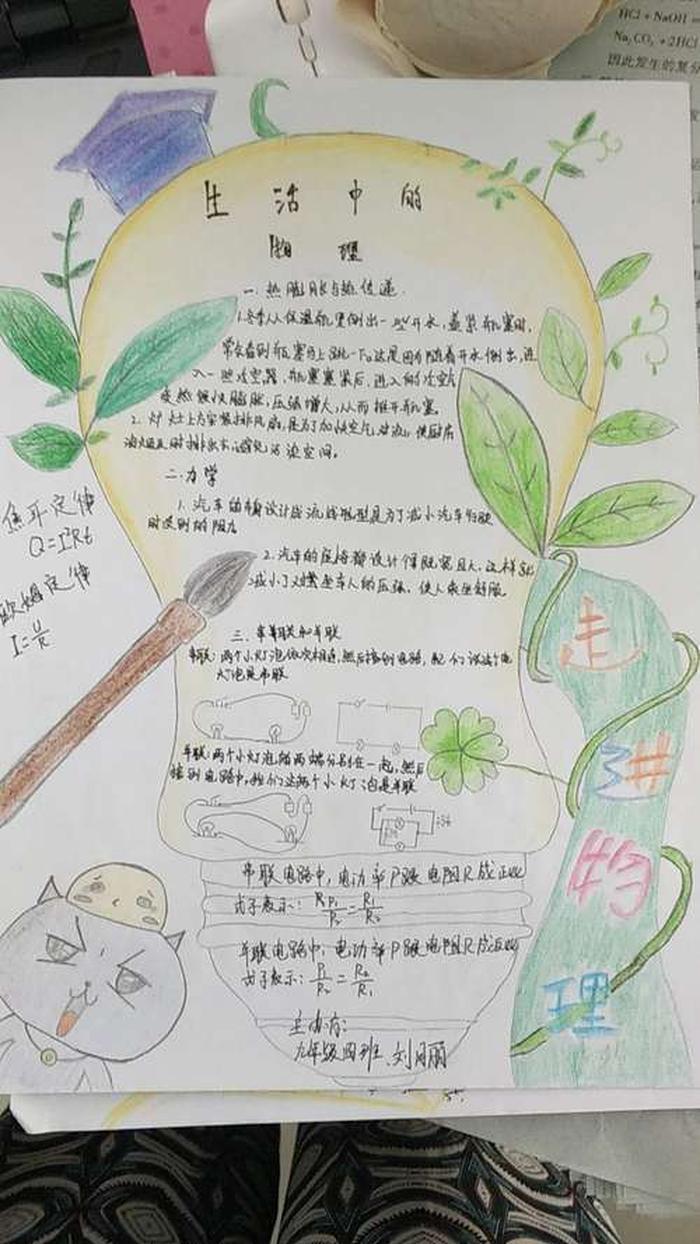 HCl + NaOH =
Na₂CO₃ + 2HCl
因此发生的复分
生活中的
物理
一.热膨胀与热传递.
1.冬季从保温瓶里倒出一些开水,盖紧瓶塞时,
常会看到瓶塞马上跳一下。这是因为随着开水倒出,进
入一些冷空气,瓶塞塞紧后,进入的冷空气
受热很快膨胀,压强增大,从而推开瓶塞。
2.炉灶上方安装排风扇,是为了加快空气对流,使厨房
油烟及时排出去,避免污染空间。
二.力学
1.汽车的 设计成流线型是为了减小汽车行驶
时受到的阻力
2.汽车的座椅都设计得既宽且大,这样就
减小了 坐车人的压强,使人乘坐舒服。
三.串联和并联
串联:两个小灯泡依次相连,然后接到电路,我们说这个电
灯泡是串联
并联:两个小灯泡的两端分别 在一起,然后
接到电路中,我们 这两个小灯泡是并联
串联电路中,电功率P跟电阻R成正比
式子表示: P₁/P₂=R₁/R₂
并联电路中,电功率P跟电阻R成 比
式子表示:P₁/P₂=R₂/R₁
主办方:
九年级四班、刘月丽
焦耳定律
Q=I²Rt
欧姆定律
I=U/R
走
进
物
理